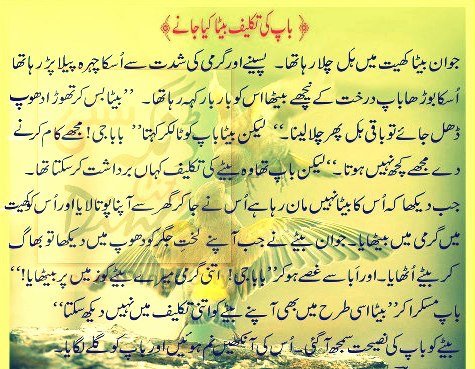 ﴿ باپ کی تکلیف بیٹا کیا جانے ﴾
جوان بیٹا کھیت میں ہل چلا رہا تھا۔ پسینے اور گرمی کی شدت سے اُسکا چہرہ پیلا پڑ رہا تھا
اُسکا بوڑھا باپ درخت کے نیچے بیٹھا اس کو بار بار کہہ رہا تھا۔ ”بیٹا بس کر تھوڑا دھوپ
ڈھل جائے تو باقی ہل پھر چلا لینا۔“ لیکن بیٹا باپ کو ٹال کر کہتا” بابا جی! مجھے کام کرنے
دے مجھے کچھ نہیں ہوتا۔“ لیکن باپ تھا وہ بیٹے کی تکلیف کہاں برداشت کر سکتا تھا۔
جب دیکھا کہ اُس کا بیٹا نہیں مان رہا ہے اُس نے جا کر گھر سے اپنا پوتا لایا اور اُس کو کھیت
میں گرمی میں بیٹھایا۔ جوان بیٹے نے جب اپنے لخت جگر کو دھوپ میں دیکھا تو بھاگ
کر بیٹے اُٹھایا۔ اور اَبا سے غصے ہو کر ”بابا جی! اتنی گرمی میں میرے بیٹے کو زمیں پر بیٹھایا!“
باپ مسکرا کر ”بیٹا اسی طرح میں بھی اپنے بیٹے کو اتنی تکلیف میں نہیں دیکھ سکتا“
بیٹے کو باپ کی نصیحت سمجھ آ گئی۔ اُس کی آنکھیں نم ہوئیں اور باپ کو گلے لگایا۔